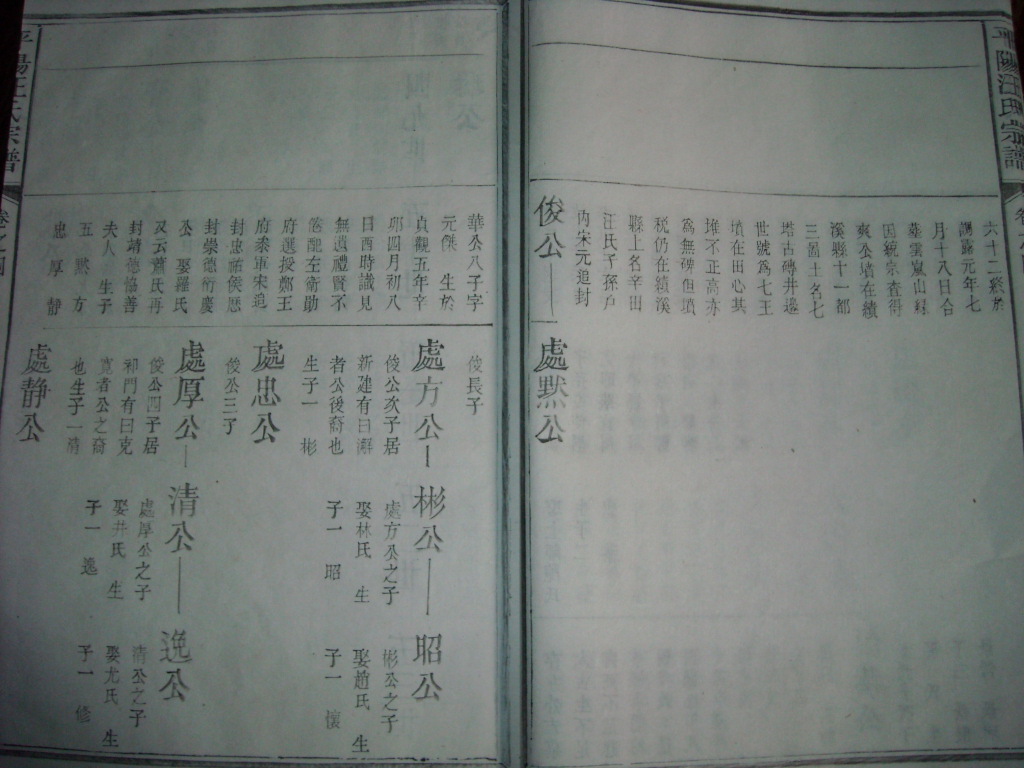 平陽汪氏宗譜
六十二終於
元年七
月十八日合
葬雲嵐山緑
因統宗查得
爽公墳在績
溪縣十一都
三圖土名七
塔古磚井邊
世號爲七王
墳在田心其
堆不正高亦
爲無磚但墳
稅仍在績溪
縣上名辛田
汪氏子孫戶
内宋元追封
俊公
處默公
華公八子字
元傑 生於
貞觀五年辛
卯四月初八
日酉時識見
無遺禮賢不
府選授鄭王
府叅軍宋追
封忠祐侯愿
封崇德衍慶
公 娶羅氏
又云蕭氏再
封靖德恊善
夫人 生子
五 默 方
忠 厚 靜
俊長子
處方公
俊公次子居
新建有曰澥
者公後裔也
生子一 彬
處忠公
俊公三子
處厚公
俊公四子居
祁門有曰克
寬者公之裔
也生子一清
處靜公
彬公
處方公之子
娶林氏 生
子一 昭
清公
處厚公之子
娶井氏 生
子一 逸
昭公
彬公之子
娶趙氏 生
子一 懷
逸公
清公之子
娶尤氏 生
子一 修
平陽汪氏宗譜